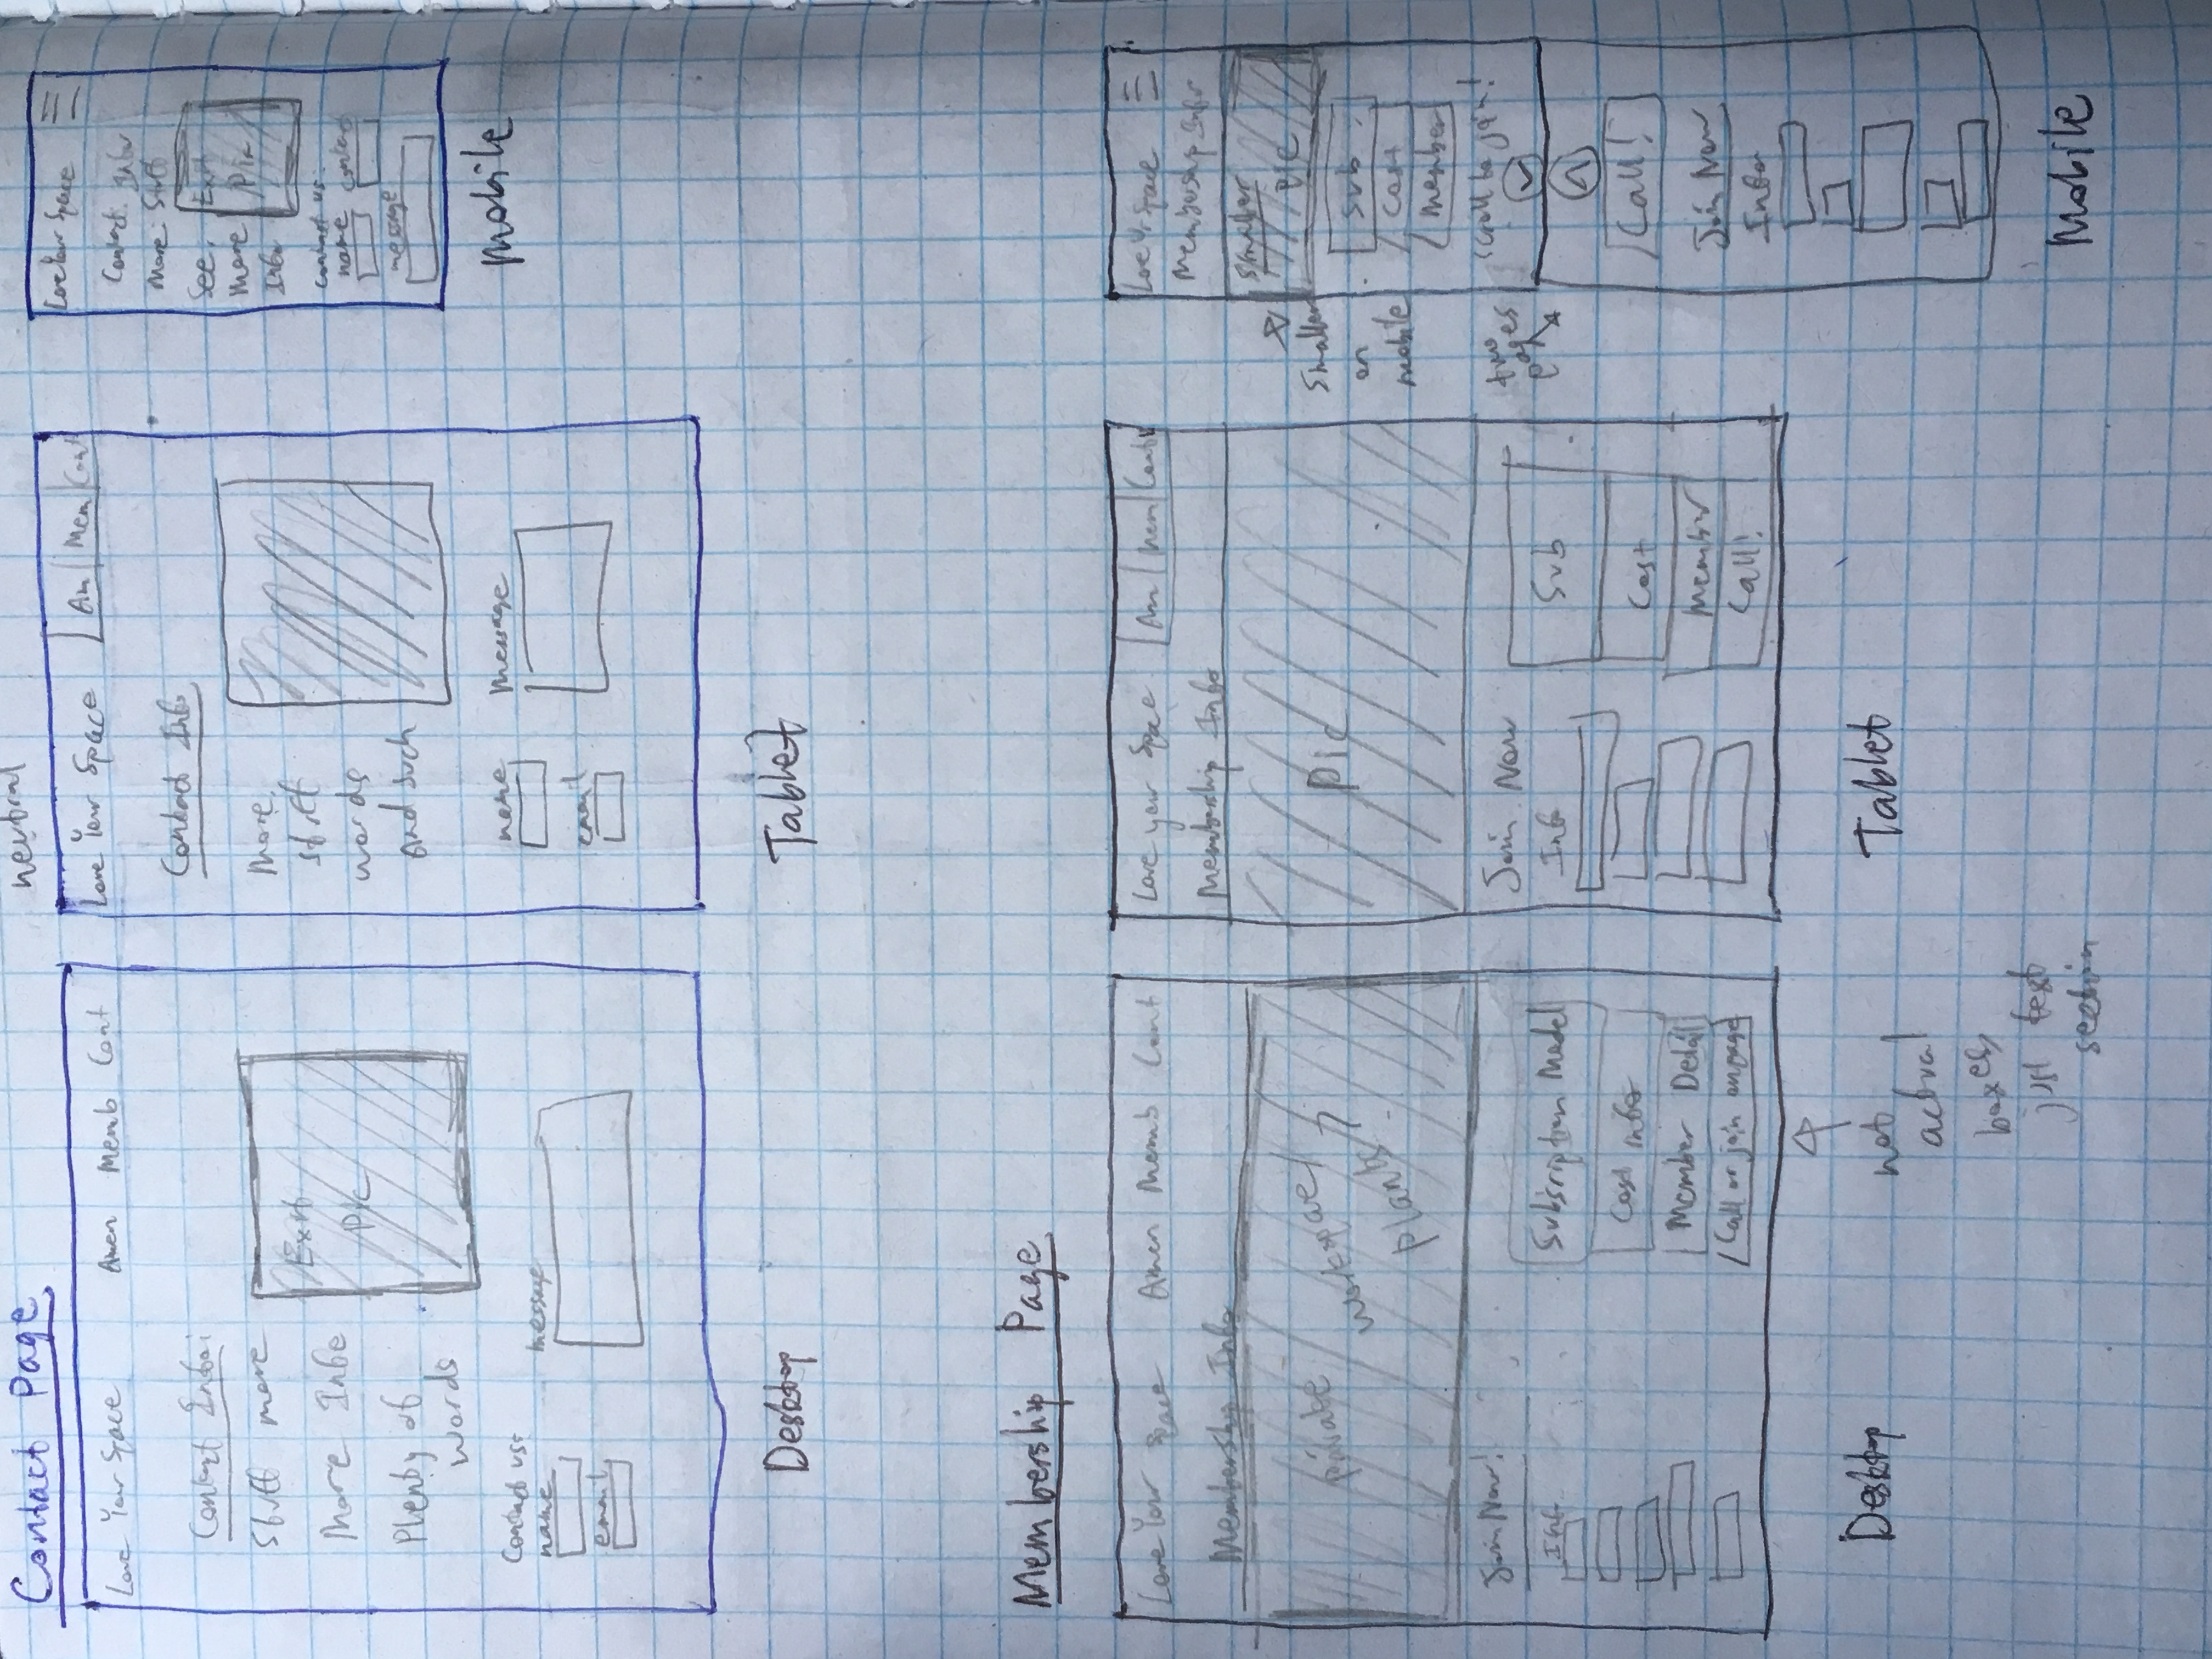 neutral
Contact Page
Love Your Space Amen Memb Cont
Contact Info:
Stuff more
More Info
Plenty of
words
Pic
Contact us:
name
email
message
Desktop
Love Your Space Am Mem Cont
Contact Info
More
stuff
words
And such
name
email
Message
Tablet
Love Your Space
Contact Info
More Stuff
See
More
Info
Pic
Contact us:
name contact
message
Mobile
Membership Page
Love Your Space Amen Memb Cont
Membership Info
Private
workspace/
plants?
Join Now!
Inf
Subscription Model
Cost info
Member Detail
Call or join on page
Desktop
not
actual
boxes,
just text
section
Love your Space Am Mem Cont
Membership Info
Pic
Join Now
Info
Sub
Cost
Member
Call!
Tablet
Smaller
on
mobile
two
pages
Love Yr Space
Membership Info
Smaller
Pic
Sub
Cost
Member
Scroll to join!
Call!
Join Now
Info
Mobile